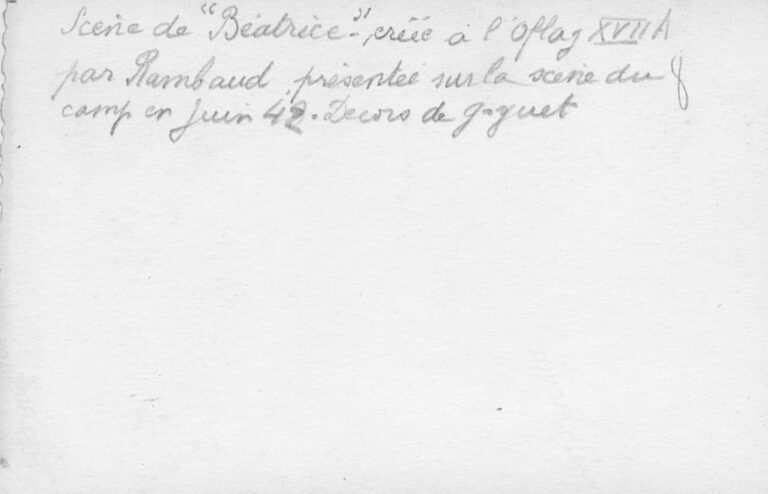 Scène de "Béatrice", créée à l'Oflag XVII A
par Rambaud, présentée sur la scène du
camp en Juin 42. Decors de Goguet